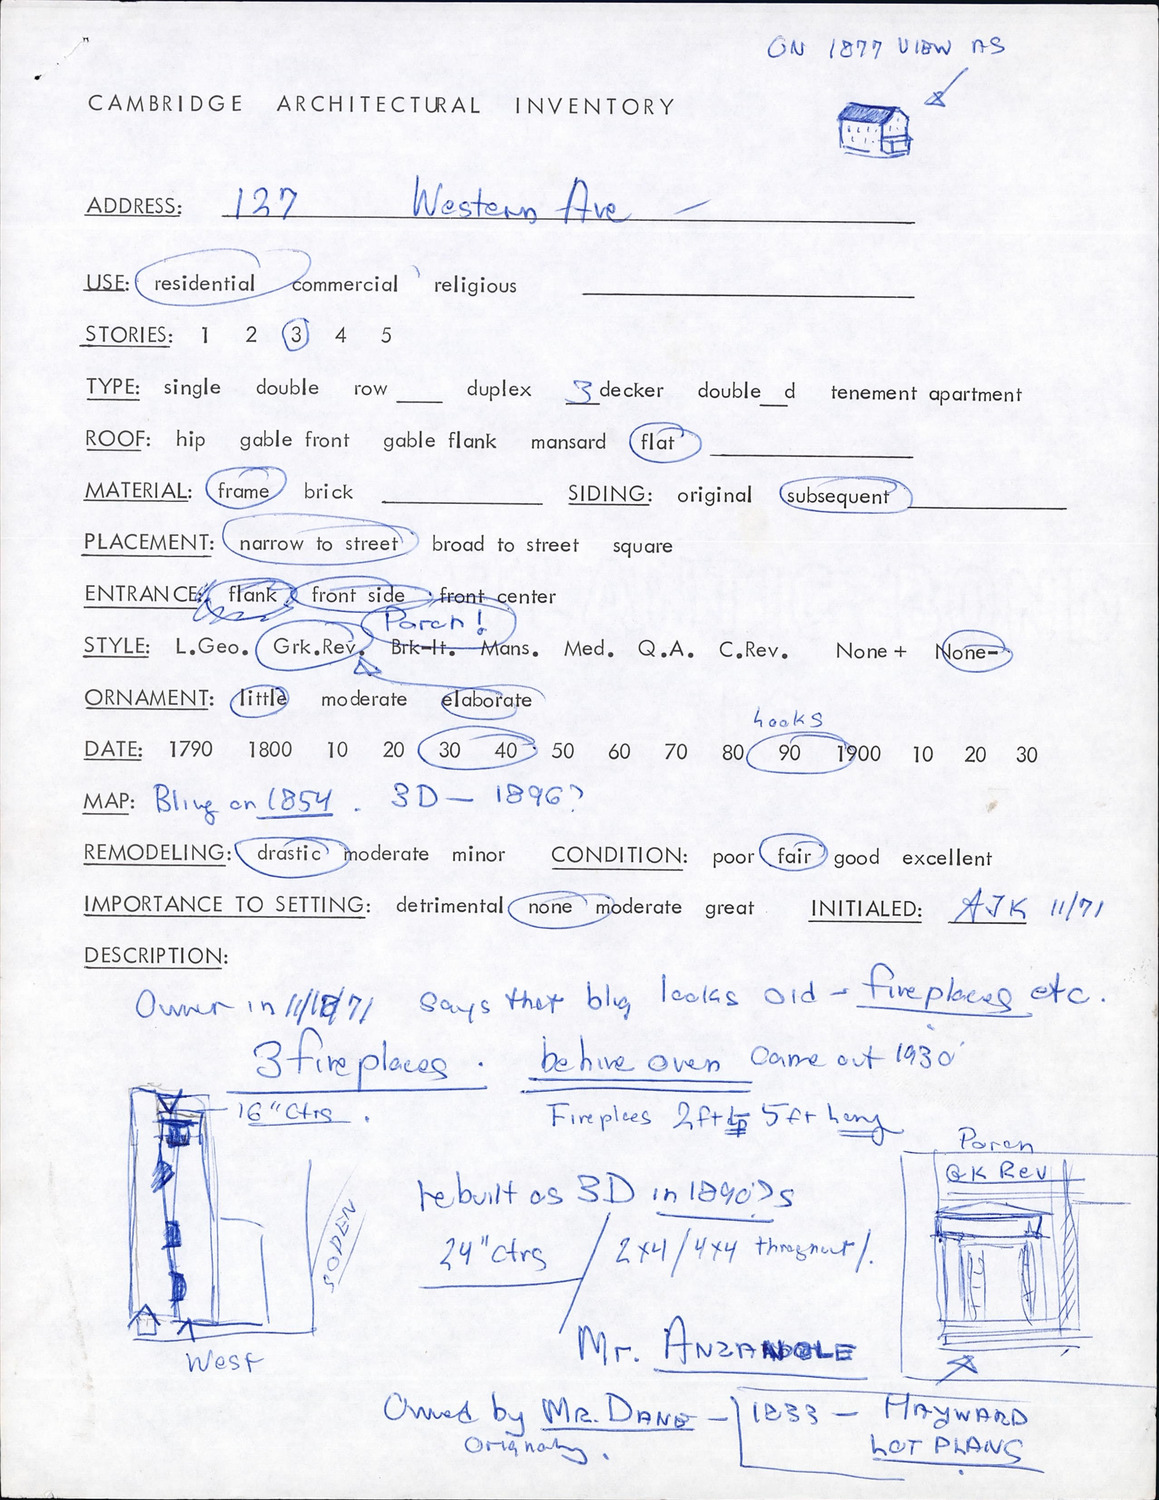 ON 1877 VIEW AS
CAMBRIDGE ARCHITECTURAL INVENTORY
ADDRESS: 127 Western Ave
USE: residential commercial religious
STORIES: 1 2 3 4 5
TYPE: single double row ___ duplex 3 decker double__d tenement apartment
ROOF: hip gable front gable flank mansard flat
MATERIAL: frame brick SIDING: original subsequent
PLACEMENT: narrow to street broad to street square
ENTRANCE: flank front side front center
Porch!
STYLE: L.Geo. Grk.Rev. Brk-It. Mans. Med. Q.A. C.Rev. None + None-
ORNAMENT: little moderate elaborate
looks
DATE: 1790 1800 10 20 30 40 50 60 70 80 90 1900 10 20 30
MAP: Bldg on 1854. 3D — 1896?
REMODELING: drastic moderate minor CONDITION: poor fair good excellent
IMPORTANCE TO SETTING: detrimental none moderate great INITIALED: AJK 11/71
DESCRIPTION:
Owner in 11/18/71 says that bldg looks old - fireplaces etc.
3 fireplaces. behive oven came out 1930
16" Ctrs. Fireplces 2ft 5ft long
Porch
GK Rev
rebuilt as 3D in 1890's
SODEN
24" ctrs / 2x4/4x4 throghout/.
Mr.
West
Owned by Mr. DANE - 1833 - HAYWARD
Originaly. LOT PLANS